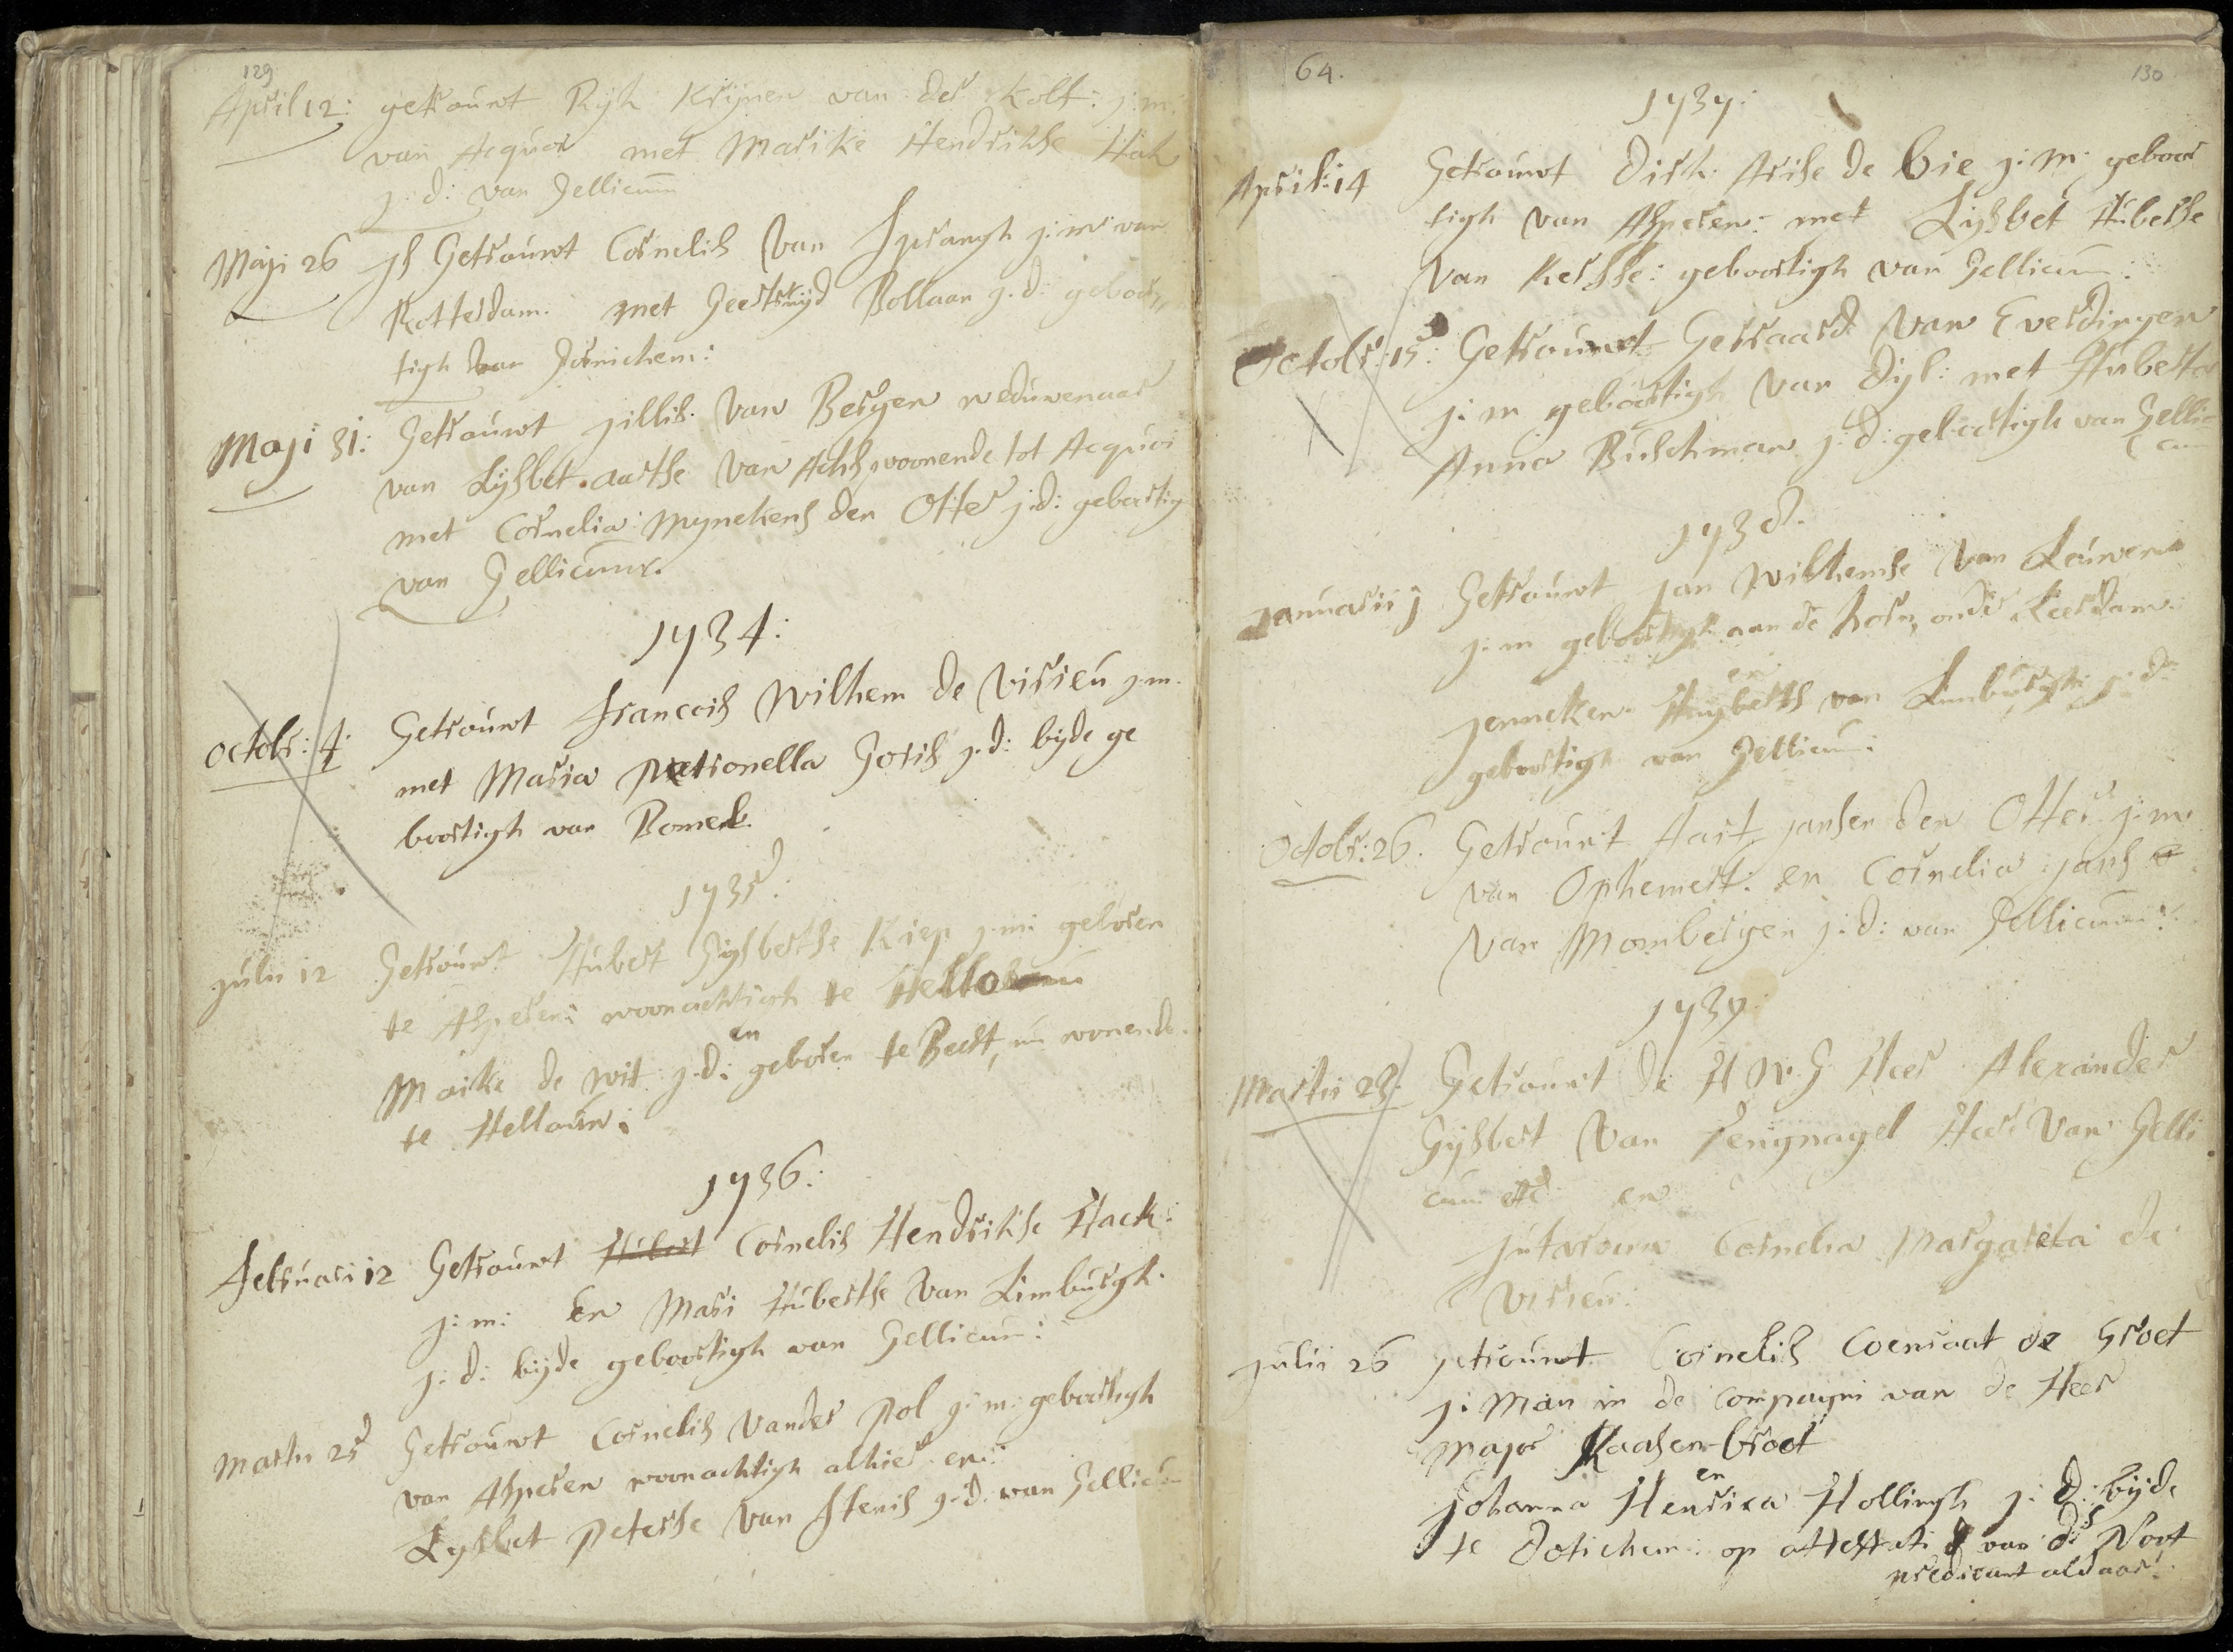 129
April 12: getrouwt Ryk Krijnen van der Kolk: j:m:
van Acquoi met Marike Hendrikse Hak
j: d: van Gellicum
Maji 26 js Getrouwt Cornelis Van Sprangh j:m: van
Rotterdam. met Geertruijd Bollaan j.d: geboor„
tigh van Gornichem:
Maji 31: Getrouwt jillis. Van Bergen weduwenaar
van Lijsbet aartse Van Ach, woonende tot Acquoi
met Cornelia: Mynckens den Otter j:d: geboortig
van Gellicum.
1734:
Octobr: 4: Getrouwt Francois Wilhem de Virieu j.m.
met Maria Petronella Goris j.d: bijde ge
boortigh van Bomel.
1735:
Julii 12 Getrouwt Hubert Gijsbertse Kiep j:m: geboren
te Asperen: woonachtigh te Hello
en
Maike de Wit j:d: geboren te Beest, nu wonende
te Hellouw:
1736:
Februari 12 Getrouwt Hubert Cornelis Hendrikse Hack:
j:m: En Mari Hubertse Van Limburgh.
j: d: bijde geboortigh van Gellicum:
Martii 25 Getrouwt Cornelis Vander Pol j:m: geboortigh
van Asperen woonachtigh alhier en:
Lysbet Peterse Van Stenis j:d. van Gellicum
64. 130
1737:
April: 14 Getrouwt Dirk Arise de bie j:m: geboor
tigh van Asperen: met Lijsbet Hubertse
Van Kersse: geboortigh van Gellicum:
Octobr: 15: Getrouwt Gerraard Van Everdingen
j:m geboortigh van Dyl: met Huberta
Anna Buschman j:d: geboortigh van Gelli
(cum
1738.
Januarii j Getrouwt Jan Wilhemse Van Leuwen
j:m geboortigh aan de horn, onder Leerdam.
en
Jenneken Huyberts van Limburgh j:d:
geboortigh van Gellicum:
Octobr: 26. Getrouwt Aart jansen den Otter j:m.
van Ophemert. en Cornelia jans
Van Mombergen j:d: van Gellicum:
1739:
Martii 23. Getrouwt de H W. G. Heer Alexander
Gijsbert Van Pengnagel Heer Van Gelli
cum etc en
Cornelia Margareta de
Virieu:
Julii 26 getrouwt Cornelis Coenraat de Groet
j: Man in de Compagni van de Heer
Major Kaasenbroot
en
Johanna Henrica Hollingh j: d: bijde
te Dotichem: op attestati van ds Noot
predicant aldaar.